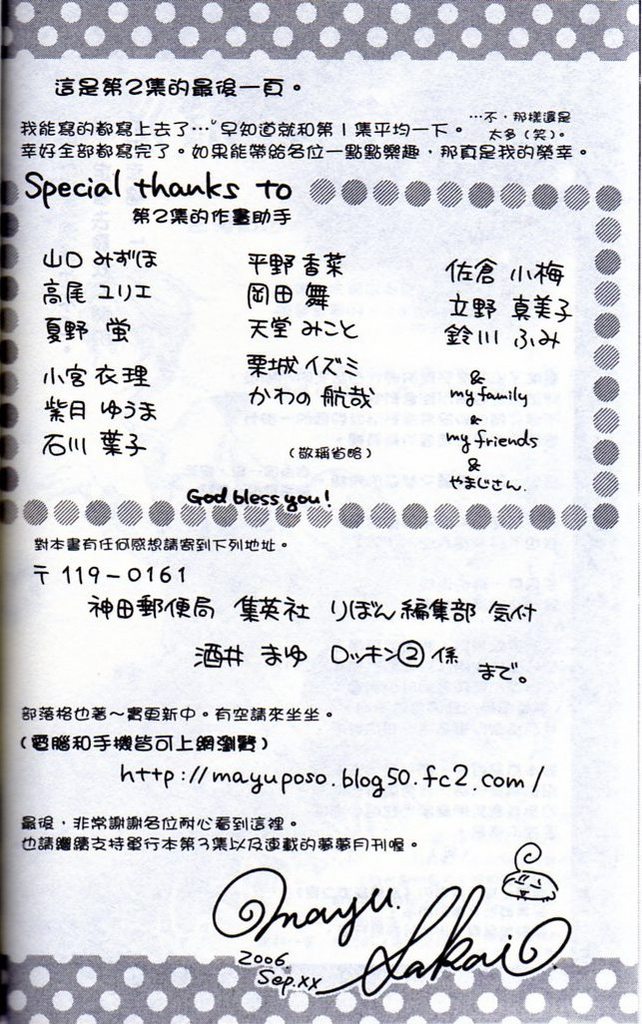 這是第2集的最後一頁。
我能寫的都寫上去了…早知道就和第1集平均一下。
…不,那樣還是
太多(笑)。
幸好全部都寫完了。如果能帶給各位一點點樂趣,那真是我的榮幸。
Special thanks to
第2集的作畫助手
山口 みずほ
高尾 ユリエ
夏野 蛍
小宮 衣理
紫月 ゆうま
石川 葉子
平野 香菜
岡田 舞
天堂 みこと
栗城 イズミ
かわの 航哉
(敬稱省略)
佐倉 小梅
立野 真美子
鈴川 ふみ
&
my family
&
my friends
&
やまじさん。
God bless you!
對本書有任何感想請寄到下列地址。
〒119-0161
神田郵便局 集英社 りぼん編集部 気付
酒井 まゆ ロッキン② 係
まで。
部落格也著~實更新中。有空請來坐坐。
(電腦和手機皆可上網瀏覽)
http://mayuposo.blog50.fc2.com/
最後,非常謝謝各位耐心看到這裡。
也請繼續支持單行本第3集以及連載的夢夢月刊喔。
mayu. Sakai
2006.
Sep.xx